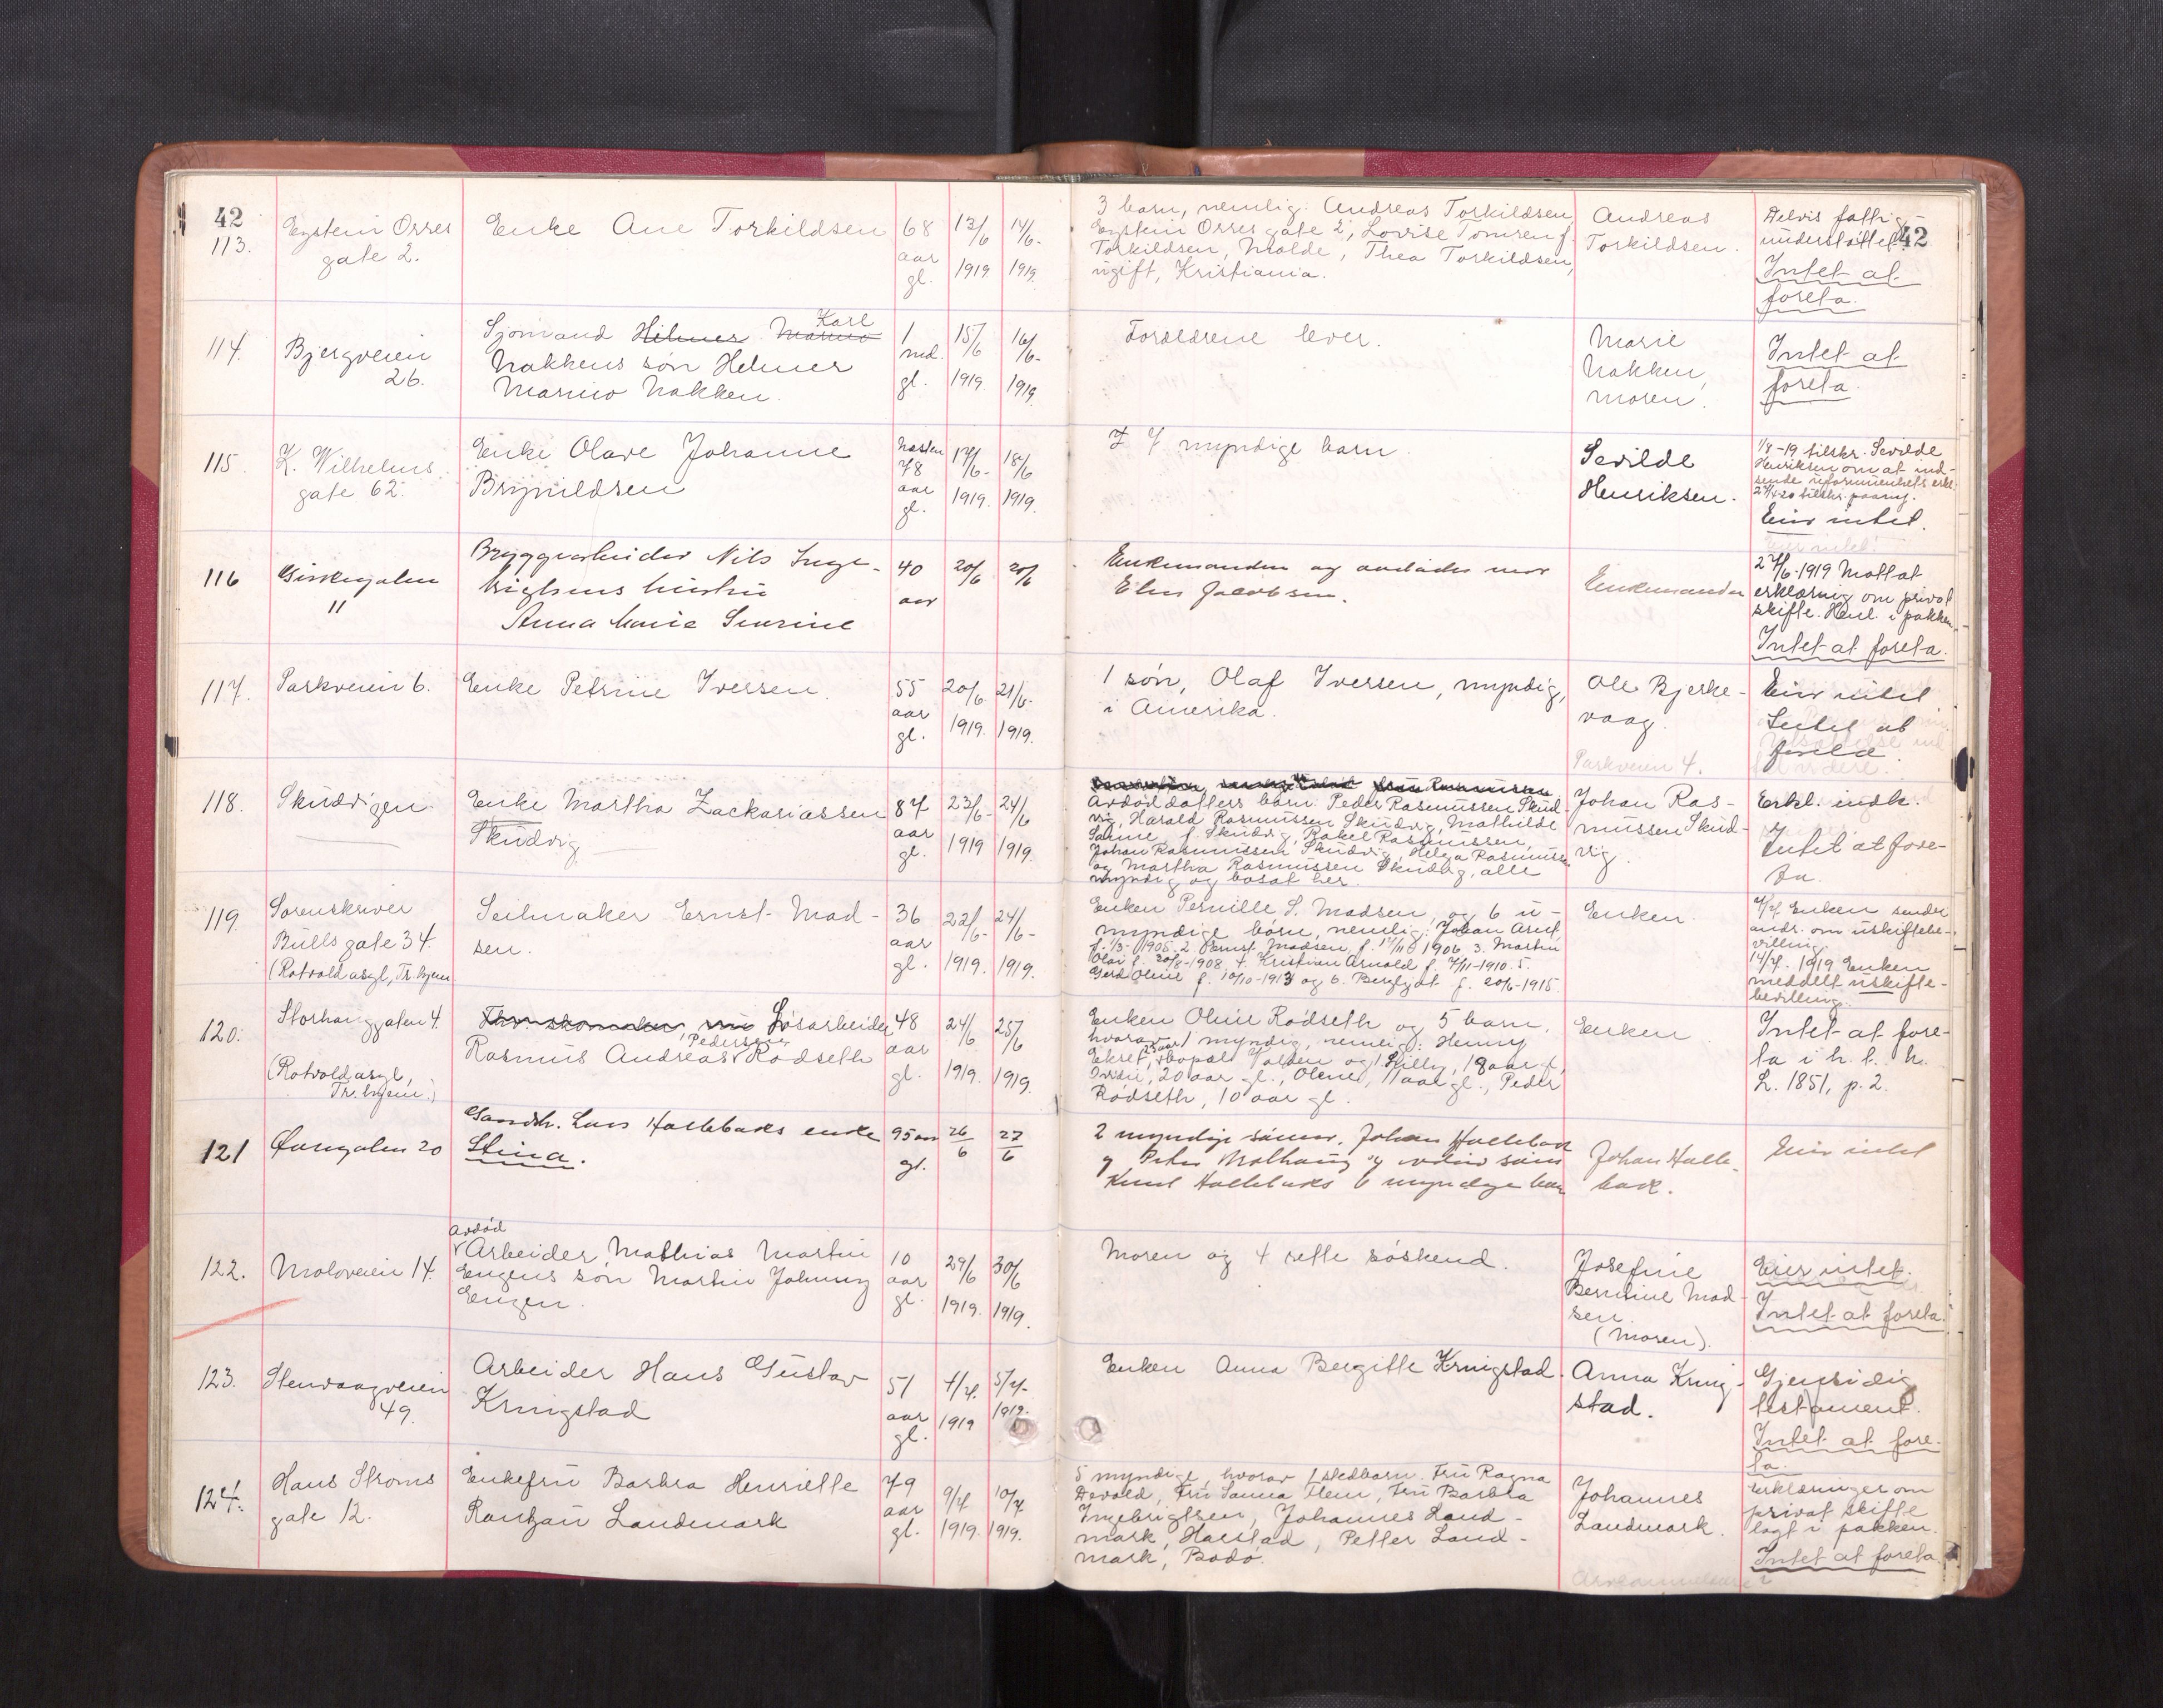 42
113.
Eystein Orres
gate 2.
Enke Ane Torkildsen
68
aar
gl.
13/6
1919
14/6-
1919.
3 barn, nemlig: Andreas Torkildsen
Eystein Orres gate 2, Lovise Tomren f.
Torkildsen, Molde, Thea Torkildsen,
ugift, Kristiania.
Andreas
Torkildsen.
Delvis fattig-
understøttet.
42
Intet at
foreta.
114.
Bjergveien
26.
Karl
Sjømand Helmer Marino
Nakkens søn Helmer
Marino Nakken.
1
md.
gl.
15/6
1919.
16/6-
1919.
Forældrene lever.
Marie
Nakken,
moren.
Intet at
foreta.
115.
K. Wilhelms
gate 62.
Enke Olave Johanne
Brynildsen
Næsten
78
aar
gl.
17/6-
1919.
18/6
1919.
7 myndige barn.
Sevilde
Henriksen.
1/8-19 tilskr. Sevilde
Henriksen om at ind-
sende uformuenhets erkl.
tilskr. paany.
Eier intet.
116
Giskegaten
11
Bryggearbeider Nils Inge-
brigtsens hustru
Anna Marie Severine
40
aar
20/6
20/6
Enkemanden og avdødes mor
Elen Jacobsen.
Enkemanden
27/6-1919 Mottat
erklæring om privat
skifte. Henl. i pakken.
Intet at foreta.
117.
Parkveien 6.
Enke Petrine Iversen.
55
aar
gl.
20/6.
1919.
21/6-
1919.
1 søn, Olaf Iversen, myndig,
i Amerika.
Ole Bjerke-
vaag.
Parkveien 4.
Eier intet.
Intet at
foreta.
118.
Skudvigen
Enke Martha Zackariassen
Skudvig
87
aar
gl.
23/6-
1919
24/6
1919.
Avdød datters barn: Peder Rasmussen Skud-
vig, Harald Rasmussen Skudvig, Mathilde
f. Skudvig, Rakel Rasmussen,
Johan Rasmussen Skudvig, Helga Rasmussen
og Martha Rasmussen Skudvig, alle
myndig og bosat her.
Johan Ras-
mussen Skud-
vig.
Erkl. indk.
Intet at fore-
ta.
119.
Sorenskriver
Bulls gate 34.
(Rotvold asyl, Tr.hjem
Seilmaker Ernst Mad-
sen.
36
aar
gl.
22/6-
1919.
24/6-
1919.
Enken Pernille S. Madsen, og 6 u-
myndige børn, nemlig: Johan Arnt,
f. 1/3-1905. 2. Ernst Madsen, f. 1906 3. Martin
Olai f. 30/8-1908 4. Kristian Arnold f. 7/11-1910. 5.
Gerd Oline f. 10/10-1913 og 6. Bergljot f. 20/6-1915.
Enken.
4/7. Enken sender
andr. om uskiftebe-
villing.
14/7. 1919 Enken
meddelt uskifte-
bevilling.
120.
Storhauggaten 4.
(Rotvold asyl,
Tr.hjem.)
Løsarbeider
Pedersen
Rasmus Andreas Rødseth
48
aar
gl.
24/6
1919.
25/6
1919.
Enken Oline Rødseth og 5 barn,
hvorav 1 myndig, nemlig: Henny
Ekret, 23 aar, bopæl Volden og Hilly, 18 aar gl.,
20 aar gl., Olene, 11 aar gl., Peder
Rødseth, 10 aar gl.
Enken
Intet at fore-
ta i h. t. h.
L. 1851, p. 2.
121
20
Gaardbr. Lars Hallebaks enke
Stina.
95 aar
gl.
26/6
27/6
2 myndige sønner, Johan Hallebak
og Peter Molhaug og avdød søns
Knut Hallebaks 6 myndige barn
Johan Halle-
bak.
Eier intet
122.
Moloveien 14.
avdød
Arbeider Mathias Martin
Engens søn Martin Johnny
Engen.
10
aar
gl.
29/6
1919.
30/6
1919.
Moren og 4 rette søskend.
Josefine
Bernine Mad-
sen.
(Moren).
Eier intet.
Intet at foreta.
123.
Stenvaagveien
49.
Arbeider Hans Gustav
Kringstad
51
aar
gl.
4/7.
1919
5/7-
1919.
Enken Anna Bergitte Kringstad.
Anna Kring-
stad.
Gjensidig
testament.
Intet at fore-
ta.
124.
Hans Strøms
gate 12.
Enkefru Barbra Henriette
Rantzau Landmark
79
aar
gl.
9/7
1919.
10/7
1919.
5 myndige, hvorav 1 stedbarn. Fru Ragna
Devold, Fru Sanna Flem, Fru Barbra
Ingebrigtsen, Johannes Land-
mark, Harstad, Petter Land-
mark, Bodø.
Johannes
Landmark.
Erklæringer om
privat skifte
lagt i pakken.
Intet at foreta.